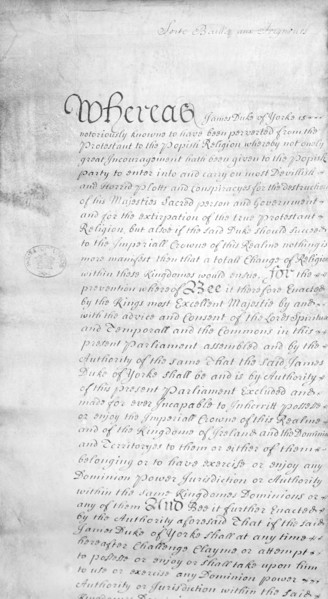 Soit Baillé aux Seigneurs
Whereas James Duke of Yorke is
notoriously knowne to have been perverted from the
Protestant to the Popish Religion whereby not onely
great Incouragement hath been given to the Popish
party to enter into and carry on most Devillish
and Horrid Plotts and Conspiracyes for the destruction
of his Majesties Sacred person and Government
and for the extirpation of the true Protestant
Religion, but alsoe if the said Duke should succeed
to the Imperiall Crowne of this Realme nothing is
more manifest then that a totall Change of Religion
within these Kingdomes would ensue. For the
prevention whereof Bee it therefore Enacted
by the Kings most Excellent Majestie by and
with the advice and Consent of the Lords Spirituall
and Temporall and the Commons in this
present Parliament assembled and by the
Authority of the same That the said James
Duke of Yorke shall be and is by Authority
of this present Parliament Excluded and
made for ever Incapable to Inheritt possesse
or enjoy the Imperiall Crowne of this Realme
and of the Kingdome of Ireland and the Dominions
and Territoryes to them or either of them
belonging or to have exercise or enjoy any
Dominion Power Jurisdiction or Authority
within the same Kingdomes Dominions or
any of them And Bee it further Enacted
by the Authority aforesaid That if the said
James Duke of Yorke shall at any time
hereafter Challenge Clayme or attempt
to possesse or enjoy or shall take upon him
to use or exercise any Dominion power
Authority or Jurisdiction within the said